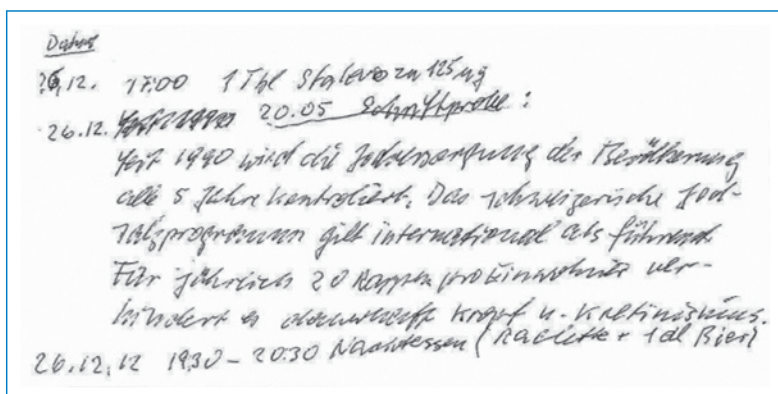 Datum
26.12. 17.00 1 Tbl Stalevo zu 125 mg
26.12. 20.05 Schriftprobe:
Seit 1990 wird die Jodversorgung der Bevölkerung
alle 5 Jahre kontroliert. Das schweizerische Jod-
salzprogramm gilt international als führend.
Für jährlich 20 Rappen pro Einwohner ver-
hindert es dauerhaft Kropf u. Kretinismus.
26.12.12 19.30 - 20.30 Nachtessen (Raclette + 1 dl Bier)